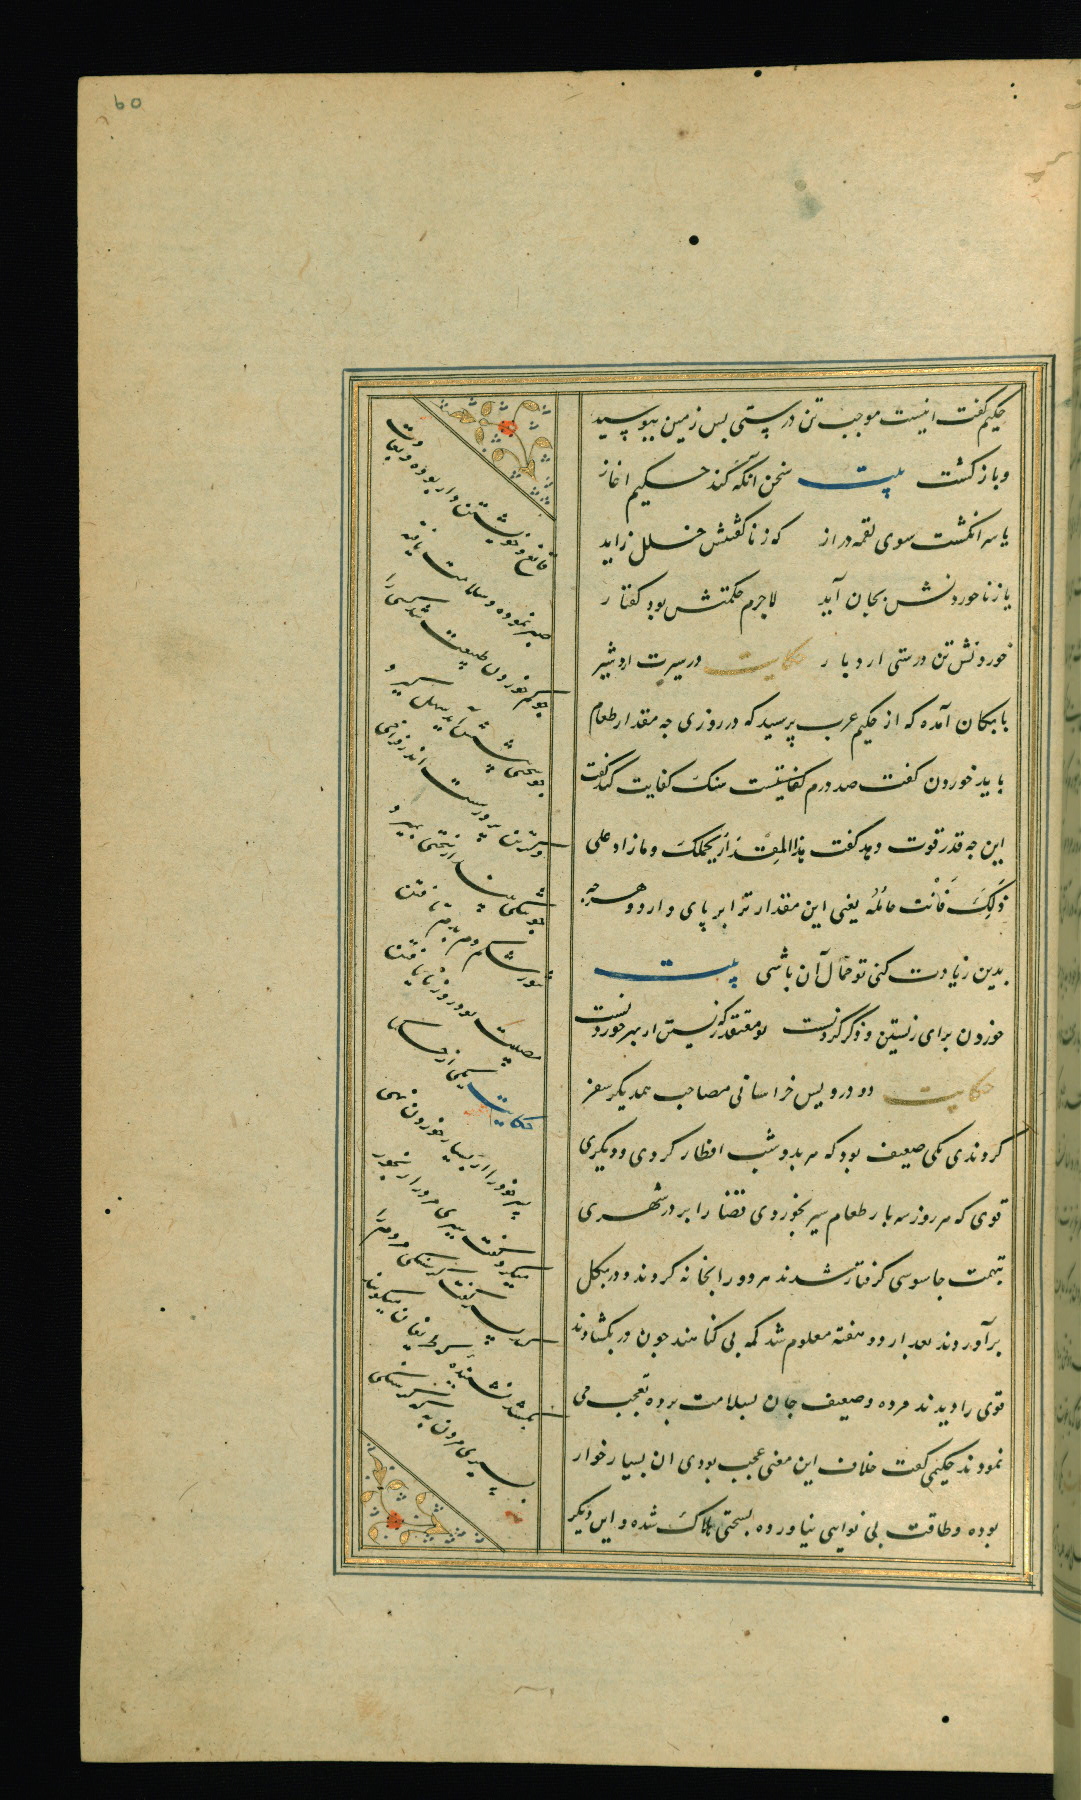 حکیم گفت اینست موجب تن درستی پس زمین ببوسید
و باز کشت بیت سخن آنکه کند حکیم اغاز
یا سر انکشت سوی لقمه دراز که ز ناکفتنش خلل زاید
یا ز ناخوردنش بجان آید لاجرم حکمتش بود کفتار
خوردنش تن درستی ارد بار حکایت در سیرت اردشیر
بابکان آمده که از حکیم عرب پرسید که در روزی چه مقدار طعام
باید خوردن کفت صد درم سنک کفایت کند گفت
این چه قدر قوت دهد کفت هذا المقدار یحملک و ما زاد علی
ذلک فانت حامله یعنی این مقدار ترا بر پای دارد و هر چه
بدین زیادت کنی تو حمال آن باشی بیت
خوردن برای زیستن و ذکر کردنست تو معتقد که زیستن از بهر خوردنست
حکایت دو درویش خراسانی مصاحب همدیکر سفر
کردندی یکی ضعیف بود که هر بدو شب افطار کردی و دیکری
قوی که هر روز سه بار طعام سیر بخوردی قضا را بر در شهری
بتهمت جاسوسی کرفتار شدند هر دو را بخانه کردند و در بکل
برآوردند بعد از دو هفته معلوم شد که بی کناهند چون در بکشادند
قوی را دیدند مرده و ضعیف جان بسلامت برده تعجب می
نمودند حکیمی کفت خلاف این معنی عجب بودی ان بسیار خوار
بوده و طاقت بی نوایی نیاورده بسختی هلاک شده و این دیکر
قانع و خویشتن دار بوده و بعادت
صبر نموده و سلامت یافته
چو کم خوردن طبیعت شد کسی را
چو سختی پیشش آید سهل کیرد
و کر تن پرورست اندر فراخی
چو تنکی بیند از سختی بمیرد
تنور شکم دم بدم تافتن
مصیبت بود روز نایافتن
حکایت یکی از حکما
پسر خود را از بسیار خوردن نهی
میکرد گفت سیری مردم را رنجور
پسر کفت کرسنکی مردم را
بکشد نشنیده که ظریفان میکویند
بسیری مردن به که کرسنکی